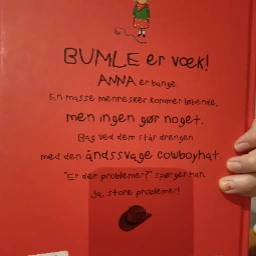 BUMLE er væk!
ANNA er bange.
En masse mennesker kommer løbende,
men ingen gør noget.
Bag ved dem står drengen
med den åndssvage cowboyhat.
"Er der problemer?" spørger han.
Ja, store problemer!